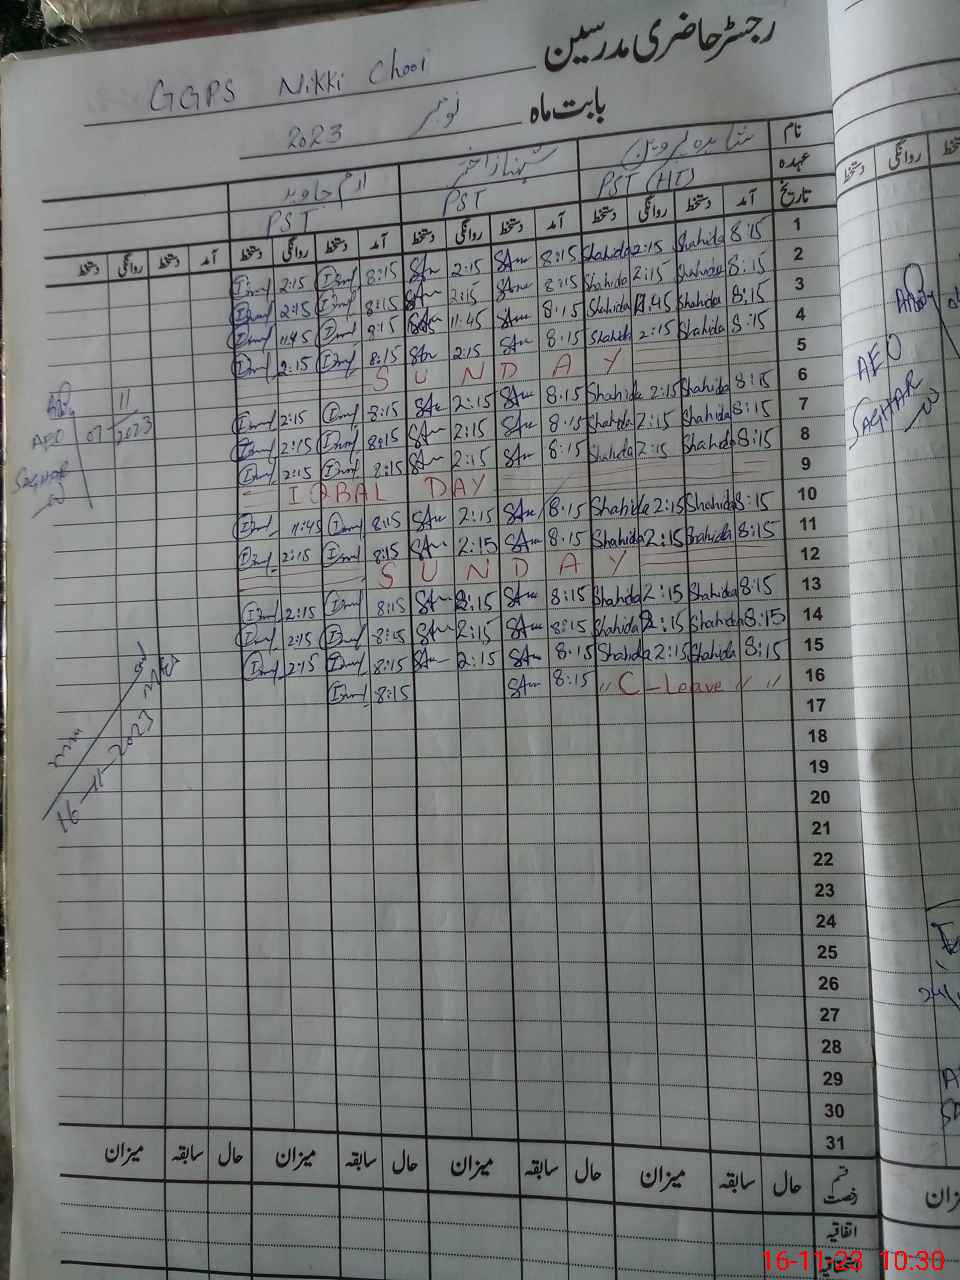 رجسٹر حاضری مدرسین
GGPS Nikki Chooi
بابت ماہ نومبر 2023
نام شاہدہ پروین شہناز اختر ارم جاوید
عہدہ PST (HT) PST PST
تاریخ آمد دستخط روانگی دستخط آمد دستخط روانگی دستخط آمد دستخط روانگی دستخط آمد دستخط روانگی دستخط
1 8:15 Shahida 2:15 Shahida 8:15 2:15 8:15 2:15
2 8:15 Shahida 2:15 Shahida 8:15 2:15 8:15 2:15
3 8:15 Shahida 11:45 Shahida 8:15 11:45 8:15 11:45
4 8:15 Shahida 2:15 Shahida 8:15 2:15 8:15 2:15
5 SUNDAY
6 8:15 Shahida 2:15 Shahida 8:15 2:15 8:15 2:15
7 8:15 Shahida 2:15 Shahida 8:15 2:15 8:15 2:15
8 8:15 Shahida 2:15 Shahida 8:15 2:15 8:15 2:15
9 IQBAL DAY
10 8:15 Shahida 2:15 Shahida 8:15 2:15 8:15 11:45
11 8:15 Shahida 2:15 Shahida 8:15 2:15 8:15 2:15
12 SUNDAY
13 8:15 Shahida 2:15 Shahida 8:15 2:15 8:15 2:15
14 8:15 Shahida 2:15 Shahida 8:15 2:15 8:15 2:15
15 8:15 Shahida 2:15 Shahida 8:15 2:15 8:15 2:15
16 " C-Leave " " 8:15 8:15
17
18
19
20
21
22
23
24
25
26
27
28
29
30
31
قسم رخصت حال سابقہ میزان حال سابقہ میزان حال سابقہ میزان حال سابقہ میزان
اتفاقیہ
AEO
07/11/2023
SAGHAR
16-11-2023
روانگی دستخط
AEO
SAGHAR
میزان
16-11-23 10:30